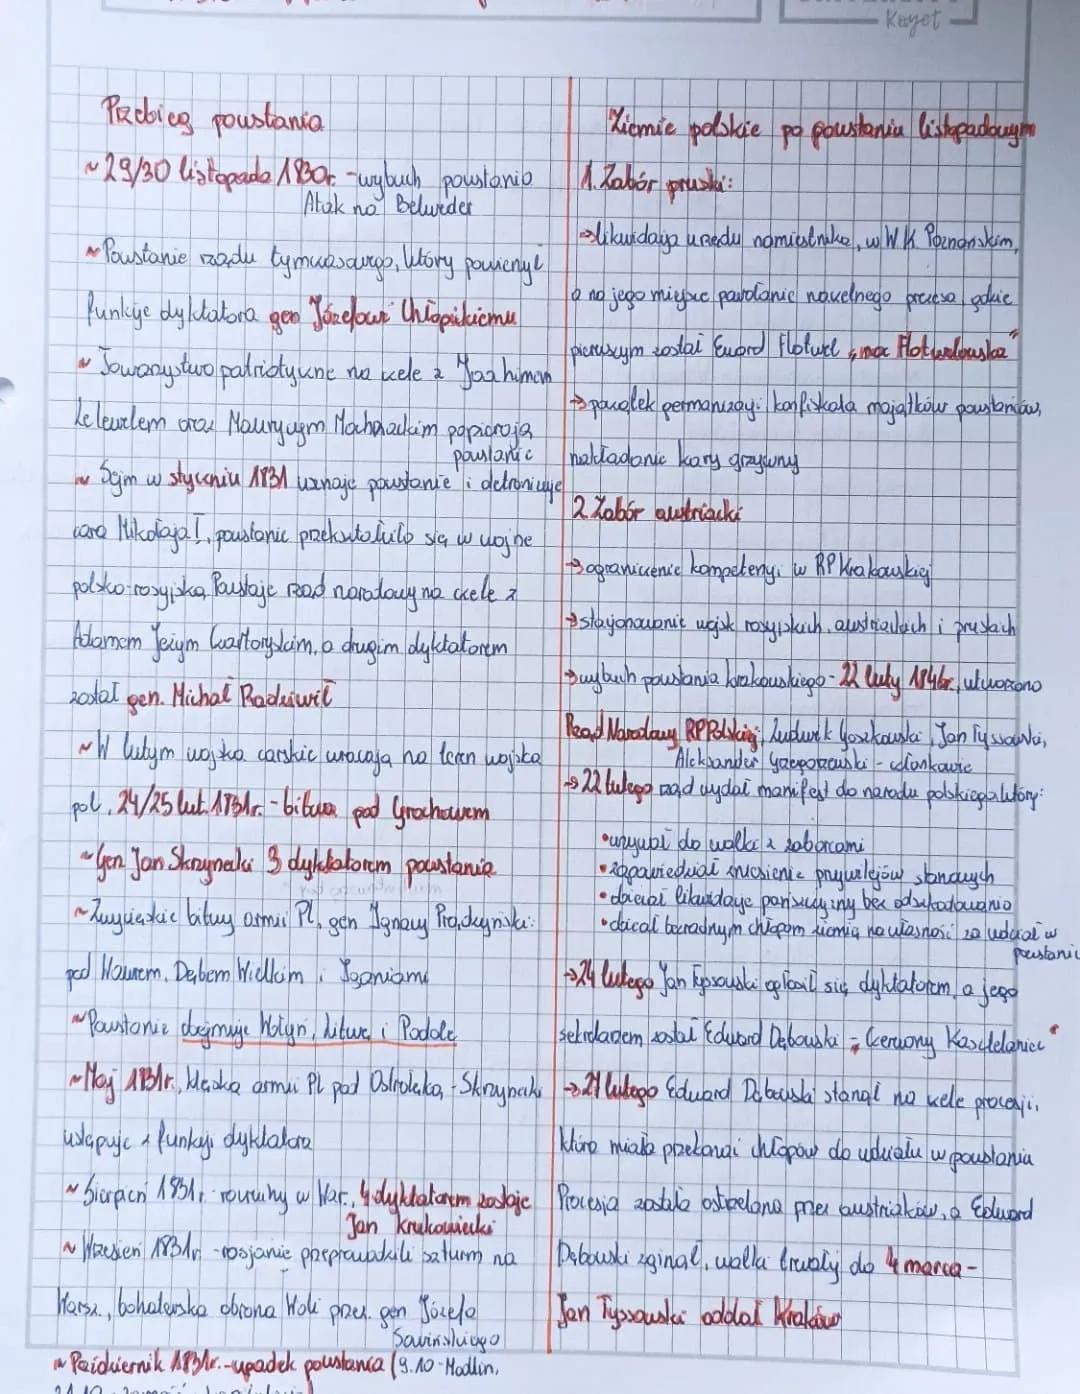 Kayet
Przebieg powstania
~29/30 listopada 1830r. - wybuch powstania
Atak na Belweder
~Powstanie rządu tymczasowego, który powierzył
funkcje dyktatora gen Józefowi Chłopickiemu
~ Towarzystwo patriotyczne na czele z Joahimem
Lelewelem oraz Maurycym Mochnackim popierają
powstanie
~ Sejm w styczniu 1831 uznaje powstanie i detronizuje
cara Mikołaja I, powstanie przekształciło się w wojnę
polsko-rosyjską. Powstaje rząd narodowy na czele z
Adamem Jerzym Czartoryskim, a drugim dyktatorem
został gen. Michał Radziwił
~W lutym wojska carskie wracają na teren wojska
pol, 24/25 lut. 1831r. - bitwa pod Grochowem
~Gen Jan Skrzynecki 3 dyktatorem powstania
~Zwycięskie bitwy armii PL, gen Ignacy Prądzyński:
pod Wawrem, Dębem Wielkim i Iganiami
~Powstanie obejmuje Wołyń, Litwę i Podole
~Maj 1831r., klęska armii PL pod Ostrołęką, - Skrzynecki
ustępuje z funkcji dyktatora
~ Sierpień 1831r. rozruchy w War., 4 dyktatorem zostaje
Jan Krukowiecki
~ Wrzesień 1831r -rosjanie przeprowadzili szturm na
Warsz., bohaterska obrona Woli przez gen Józefa
Sowińskiego
~ Październik 1831r.-upadek powstania (9.10-Modlin,
Ziemie polskie po powstaniu listopadowym
1. Zabór pruski:
→likwidacja urzędu namiestnika, w W.K. Poznańskim,
a na jego miejsce powołanie naczelnego prezesa, gdzie
pierwszym został Euard Flotwel "noc Flotwelowska"
→początek germanizacji konfiskata majątków powstańców,
nakładanie kary grzywny
2 Zabór austriacki
→ograniczenie kompetencji w RP Krakowskiej
→stacjonowanie wojsk rosyjskich, austriackich i pruskich
→wybuch powstania krakowskiego - 22 luty 1846r., utworzono
Rząd Narodowy RP Polskiej: Ludwik Goszkowski, Jan Tyssowski,
Aleksander Grzegorzewski - członkowie
→22 lutego rząd wydał manifest do narodu polskiego, który:
•wzywał do walki z zaborcami
•zapowiedział zniesienie przywilejów stanowych
•obiecał likwidację pańszczyzny bez odszkodowania
•obiecał bezrolnym chłopom ziemię na własność za udział w
powstaniu
→24 lutego Jan Tyssowski ogłosił się dyktatorem, a jego
sekretarzem został Edward Dębowski - "Czerwony Kasztelanic"
→27 lutego Edward Dębowski stanął na czele procesji,
która miała przekonać chłopów do udziału w powstaniu
Procesja została ostrzelana przez austriaków, a Edward
Dębowski zginął, walki trwały do 4 marca -
Jan Tyssowski oddał Kraków